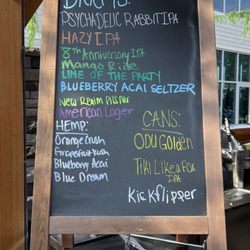 DRAFTS:
PSYCHADELIC RABBIT IPA
HAZY IPA
8th Anniversary IPA
Mango Ride
LIME OF THE PARTY
BLUEBERRY ACAI SELTZER
New Realm Pilsner
American Lager
HEMP:
Orange Crush
Forgrapefruit Kush
Blueberry Acai
Blue Dream
CANS:
ODU Golden
Tiki Like a fox
IPA
Kickflipper